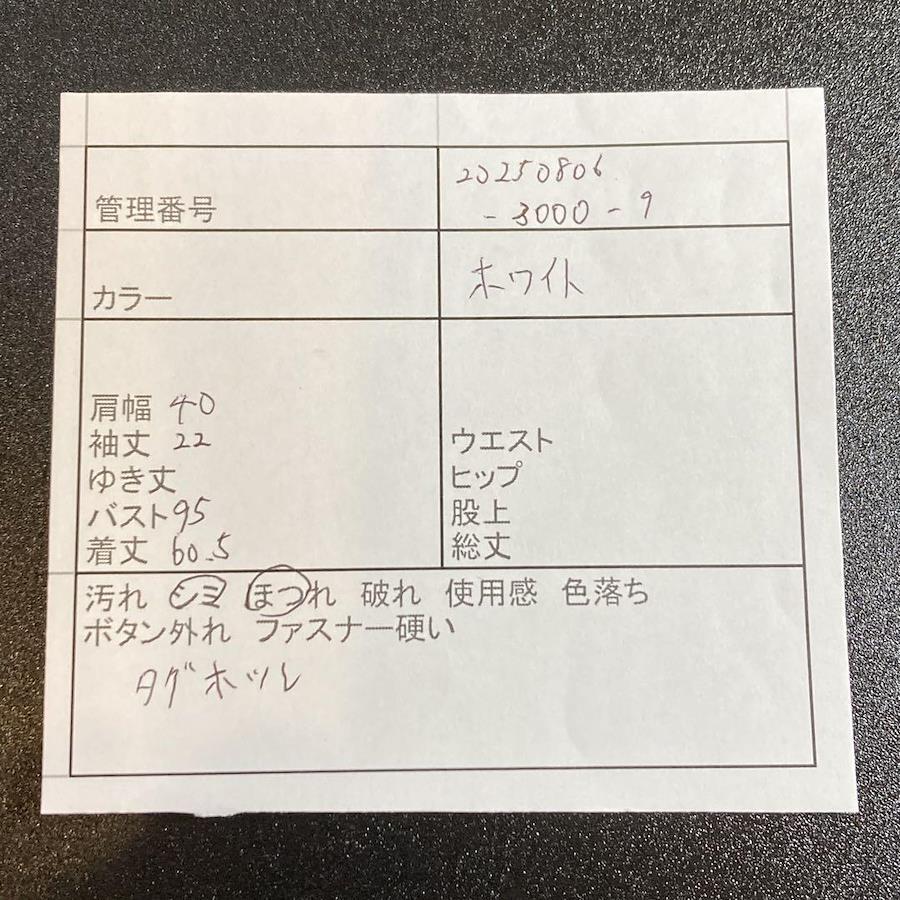 管理番号 20250806
-3000-9
カラー ホワイト
肩幅 40
袖丈 22
ゆき丈
バスト 95
着丈 60.5
ウエスト
ヒップ
股上
総丈
汚れ シミ ほつれ 破れ 使用感 色落ち
ボタン外れ ファスナー硬い
タグホツレ